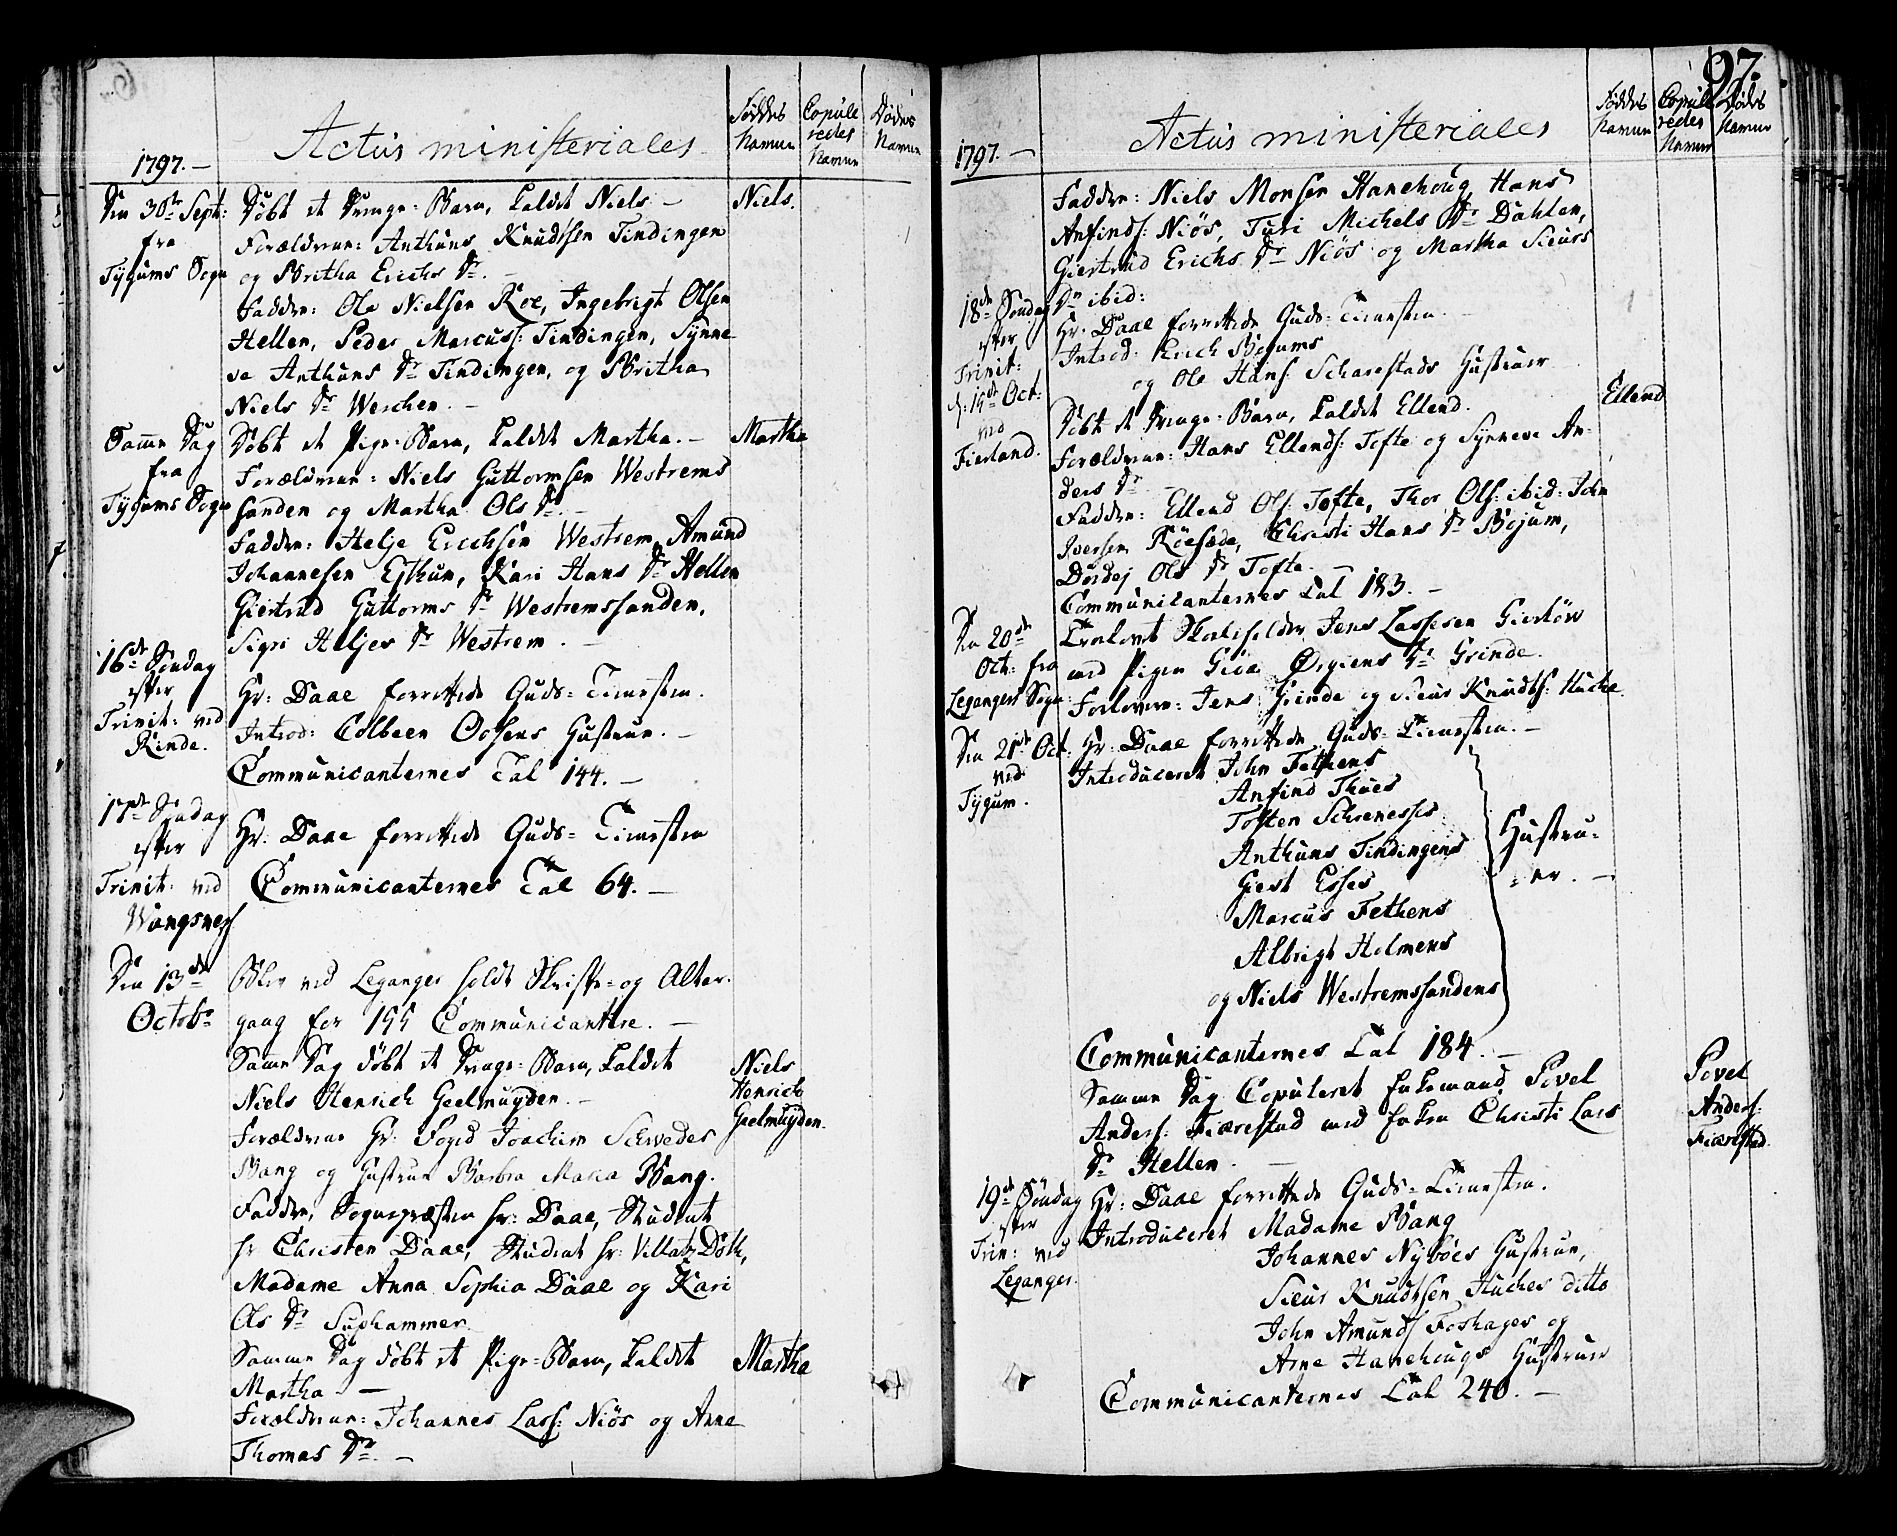 Actus ministeriales
Føddes Navne
Copulleredes Navne
Dødes Navne
1797. —
Den 30te Sept: fra Tygums Sogn
Døbt et Drenge-Barn, kaldet Niels —
Niels.
Forældrene: Anthuns Knudtsen Tindingen
og Britha Erichs Dr. —
Faddre: Ole Nielsen Roe, Ingebrigt Olsen
Hellen, Peder Marcuss: Tindingen, Synne-
ve Anthuns Dr Tindingen, og Britha
Niels Dr Weschen. —
Samme Dag fra Tygums Sogn
Døbt et Pige-Barn, kaldet Martha. —
Martha
Forældrene: Niels Guttormsen Westrems
sanden og Martha Ols Dr. —
Faddre: Helje Erichsen Westrem, Amund
Johannesen Eithun, Kari Hans Dr Hellen
Giertrud Guttorms Dr Westremssanden,
Sigri Heljes Dr Westrem —
16de Søndag efter Trinit: ved Rinde.
Hr: Daae forrettede Guds-Tienesten.
Introd: Colbeen Oohsens Hustrue. —
Communicanternes Tal 144. —
17de Søndag efter Trinit: ved Wangsnes
Hr: Daae forrettede Guds-Tienesten
Communicanternes Tal 64. —
Den 13de Octobr
Blev ved Leganger holdt Skrifte- og Alter-
gang for 155 Communicantere. —
Samme Dag døbt et Drenge-Barn, kaldet
Niels Henrich Geelmuyden. —
Niels Henrich Geelmuyden.
Forældrene Hr: Foged Joachim Schweder
Bang og Hustrue Barbra Maria Bang.
Faddre, Sognepræsten Hr: Daae, Student
Hr Christen Daae, Student Hr: Villatz Doth,
Madame Anna Sophia Daae og Kari
Ols Dr Suphammer.
Samme Dag døbt et Pige-Barn, kaldet
Martha —
Martha
Forældrene: Johannes Lass: Niøs og Anna
Thomas Dr. —
97.
Actus ministeriales
Føddes Navne
Copulleredes Navne
Dødes Navne
1797. —
Faddre: Niels Monsen Hanehoug, Hans
Anfinds: Niøs, Turi Michels Dr Dahlen,
Giertrud Erichs Dr Niøs og Martha Sieurs
Dr ibid:
18de Søndag efter Trinit: d: 15de Oct: ved Fierland.
Hr: Daae forrettede Guds-Tienesten. —
Introd: Erich Bojums
og Ole Hans: Scharestads Hustruer
Døbt et Drenge-Barn, kaldet Ellend.
Ellend
Forældrene: Hans Ellends: Tofte og Synneve An-
ders Dr —
Faddre: Ellend Ols: Tofte, Thor Ols: ibid: John
Iversen Röesæde, Christi Hans Dr Bojum,
Dordej Ols Dr Tofte. —
Communicanternes Tal 183. —
Den 20de Oct: fra Leganger Sogn
Trolovet Jens Lassesen Gierløw
med Pigen Gioa Ørgiens Dr Grinde.
Forlovere: Jens Grinde og Sieur Knudts: Huche.
Den 21de Oct. ved Tygum.
Hr: Daae forrettede Guds-Tienesten. —
Introduceret John Fethens
Anfind Thues
Tosten Schrenesses
Anthuns Tindingens
Giert Esses
Marcus Fethens
Albrigt Holmens
og Niels Westremssandens
Hustru-
-er. —
Communicanternes Tal 184. —
Samme Dag Copuleret Enkemand Povel
Anders: Fiærestad med Enken Christi Lars
Dr Hellen. —
Povel Anders: Fiærestad.
19de Søndag efter Trin: ved Leganger.
Hr: Daae forrettede Guds-Tienesten.
Introduceret Madame Bang
Johannes Nybøes Hustrue,
Sieur Knudtsen Huches ditto
John Amunds Foshages og
Arne Hanehougs Hustruer
Communicanternes Tal 240. —